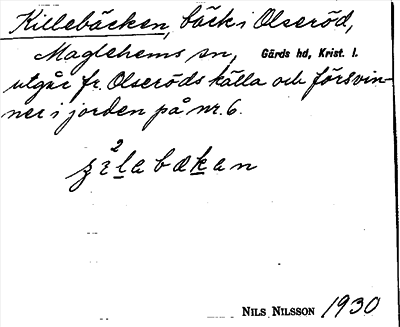 Killebäcken, bäck i Olseröd,
Maglehems sn, Gärds hd, Krist. l.
utgår fr. Olseröds källa och försvin-
ner i jorden på nr. 6.
Nils Nilsson 1930